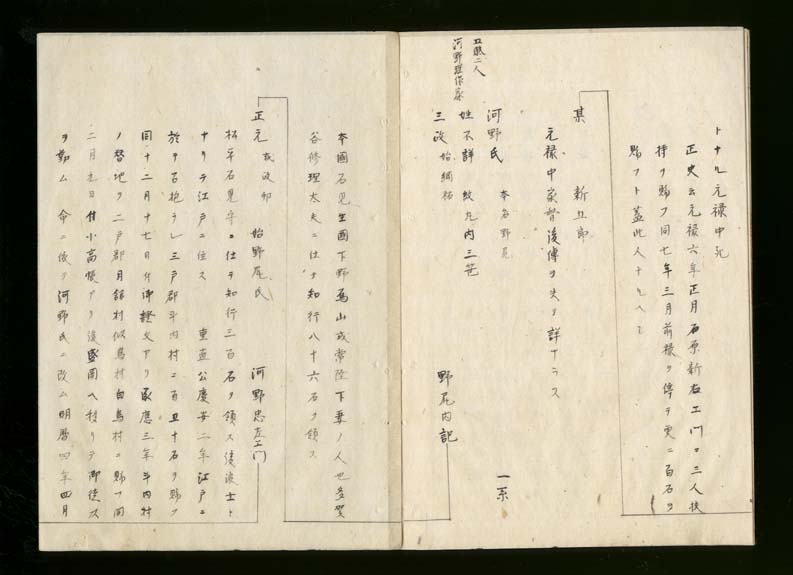 トナル元禄中死
正史云元禄六年正月石原新右エ門ニ三人扶
持ヲ賜フ同七年三月前禄ヲ停テ更ニ百石ヲ
賜フト蓋此人ナルヘシ
某 新五郎
元禄中家督後傳ヲ失ヲ詳ナラス
河野氏 本名野尾 一系
姓不詳 紋丸内三笹
三政 始綱祐 野尾内記
本國石見生國下野烏山或常陸下妻ノ人也多賀
谷修理太夫ニ仕ヲ知行八十六石ヲ領ス
正元 或政卯 始野尾氏 河野忠左エ門
松平石見守ニ仕ヲ知行三百石ヲ領ス後浪士ト
ナリテ江戸ニ住ス 重直公慶安二年江戸ニ
於テ召抱ラレ三戸郡斗内村ニ百五十石ヲ賜フ
同十二月十七日付御證文アリ承應三年斗内村
ノ替地ヲ二戸郡月舘村似鳥村白鳥村ニ賜フ同
二月元日付小高帳アリ後盛岡ヘ移リテ御徒ス
ヲ勤ム 命ニ依テ河野氏ニ改ム明暦四年四月